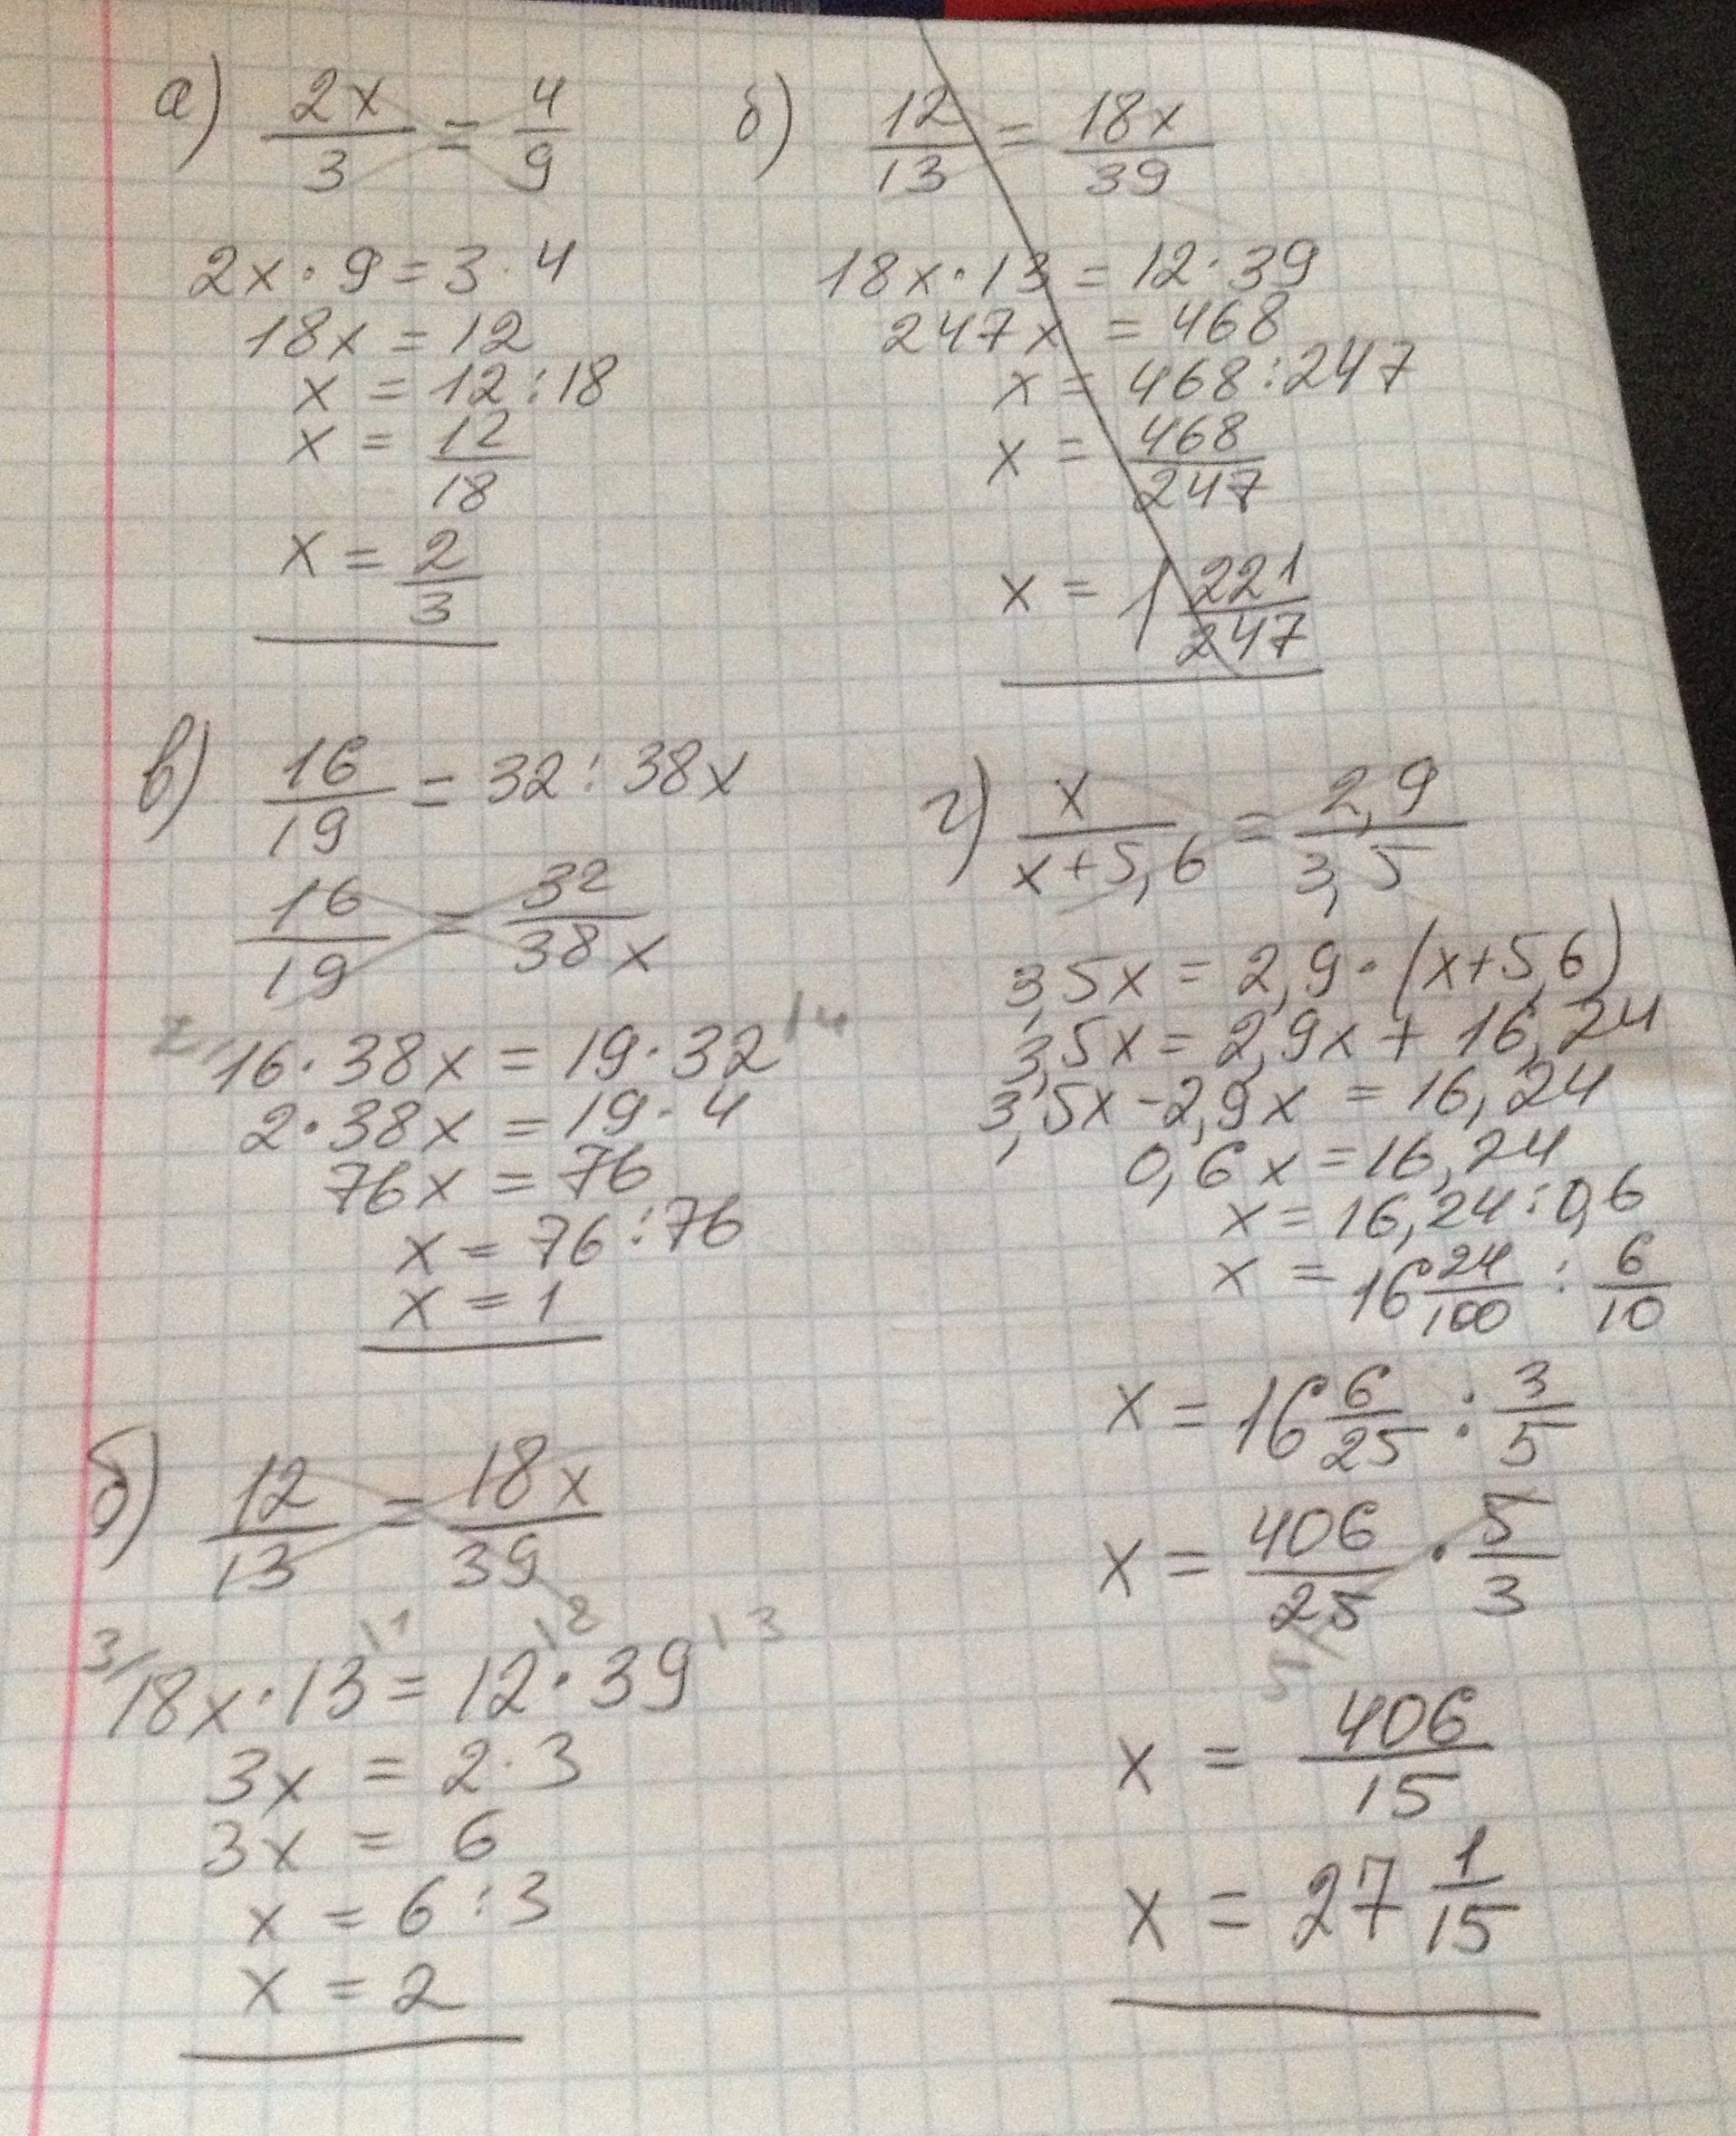 а) 2x/3 = 4/9
2x · 9 = 3 · 4
18x = 12
x = 12 : 18
x = 12/18
x = 2/3
б) 12/13 = 18x/39
18x · 13 = 12 · 39
247x = 468
x = 468 : 247
x = 468/247
x = 1 221/247
в) 16/19 = 32 : 38x
16/19 = 32/38x
2/ 16 · 38x = 19 · 32 |4
2 · 38x = 19 · 4
76x = 76
x = 76 : 76
x = 1
г) x/x+5,6 = 2,9/3,5
3,5x = 2,9 · (x+5,6)
3,5x = 2,9x + 16,24
3,5x - 2,9x = 16,24
0,6x = 16,24
x = 16,24 : 0,6
x = 16 24/100 : 6/10
x = 16 6/25 : 3/5
x = 406/25 · 5/3
5
x = 406/15
x = 27 1/15
б) 12/13 = 18x/39
3/ 18x · 13 |1 = 12 |2 · 39 |3
3x = 2 · 3
3x = 6
x = 6 : 3
x = 2